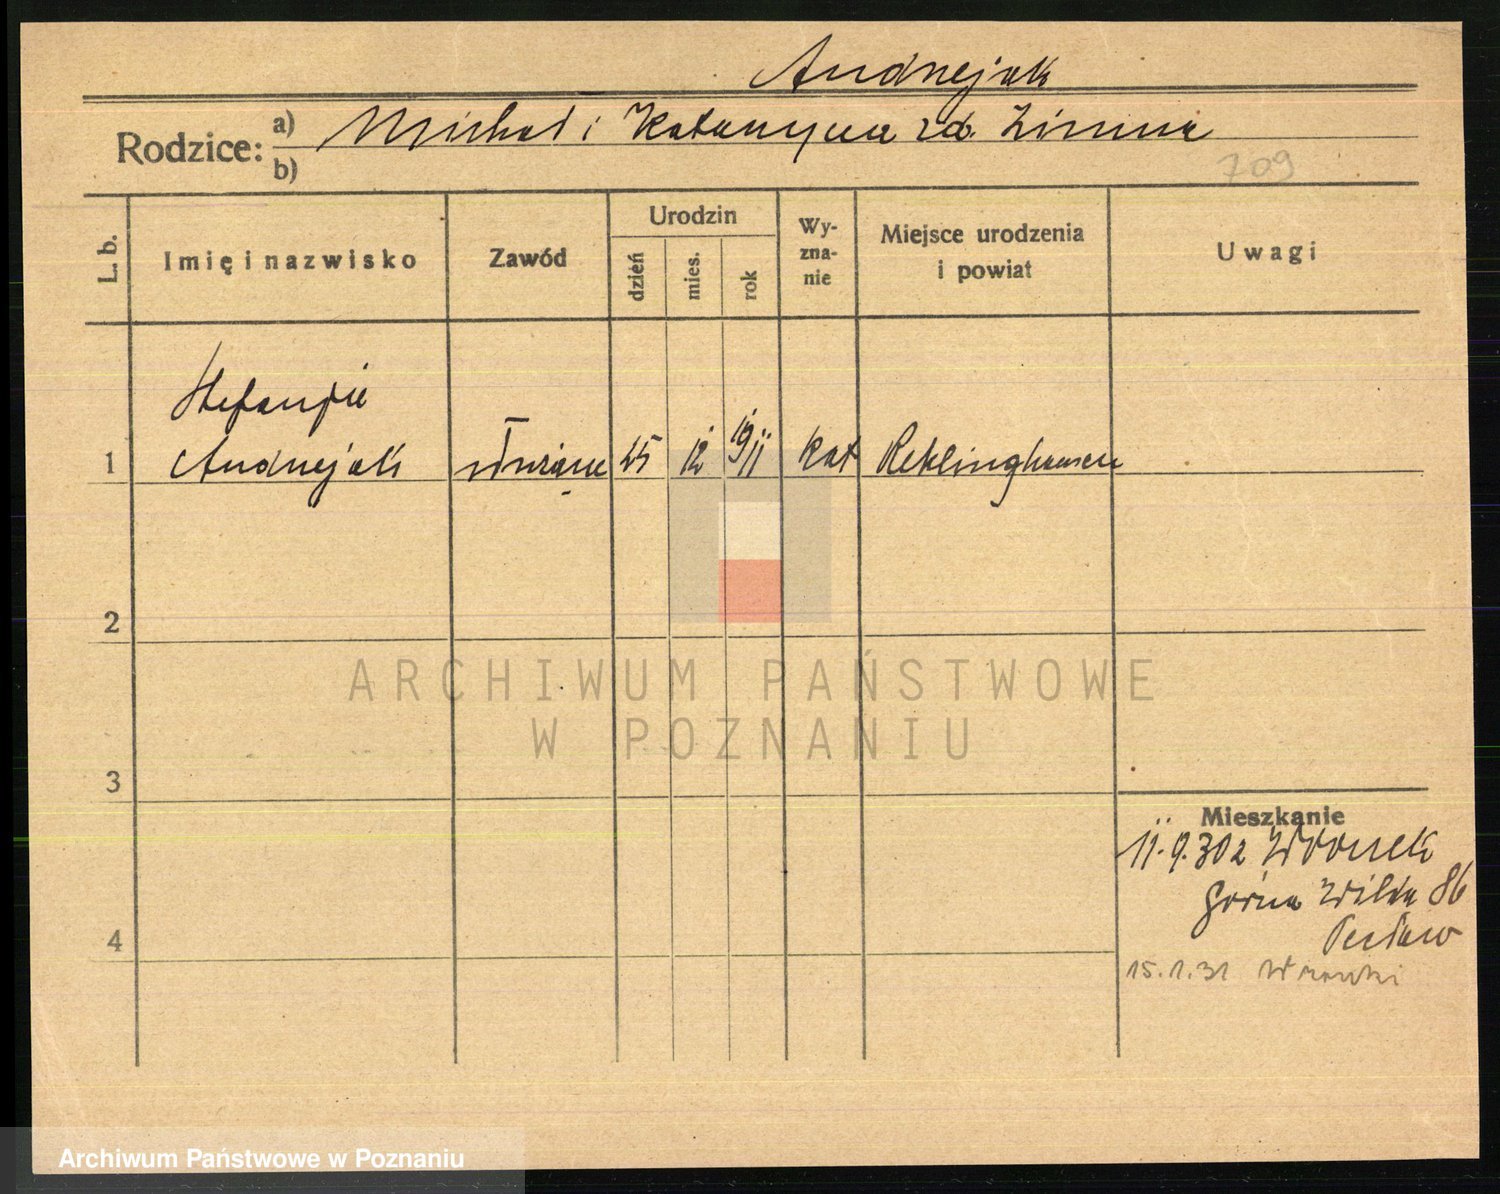 Andrzejak
Rodzice: a) Michał i Katarzyna zd. Zimna
b)
709
L. b.
Imię i nazwisko
Zawód
Urodzin
dzień
mies.
rok
Wy-
zna-
nie
Miejsce urodzenia
i powiat
Uwagi
Stefanja
1 Andrzejak służąca 25 12 1911 kat Reklinghausen
2
ARCHIWUM PAŃSTWOWE
W POZNANIU
3
Mieszkanie
11.9.30 z Wronek
Górna Wilda 86
4
15.1.31 Wronki
Archiwum Państwowe w Poznaniu